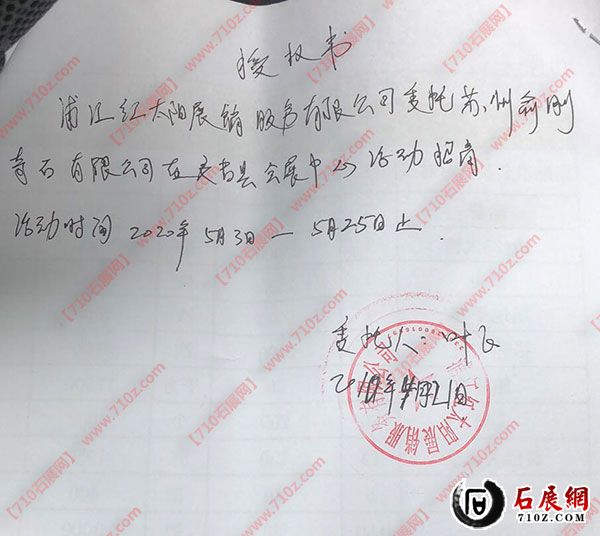 授权书
浦江红太阳展销服务有限公司委托苏州俞刚
奇石有限公司在灵台县会展中心活动招商.
活动时间2020年5月3日—5月25日止.
委托人:叶飞
月21日
江红太阳展销服务有限公司
【710石展网】
www.710z.com
石展網
710Z.COM